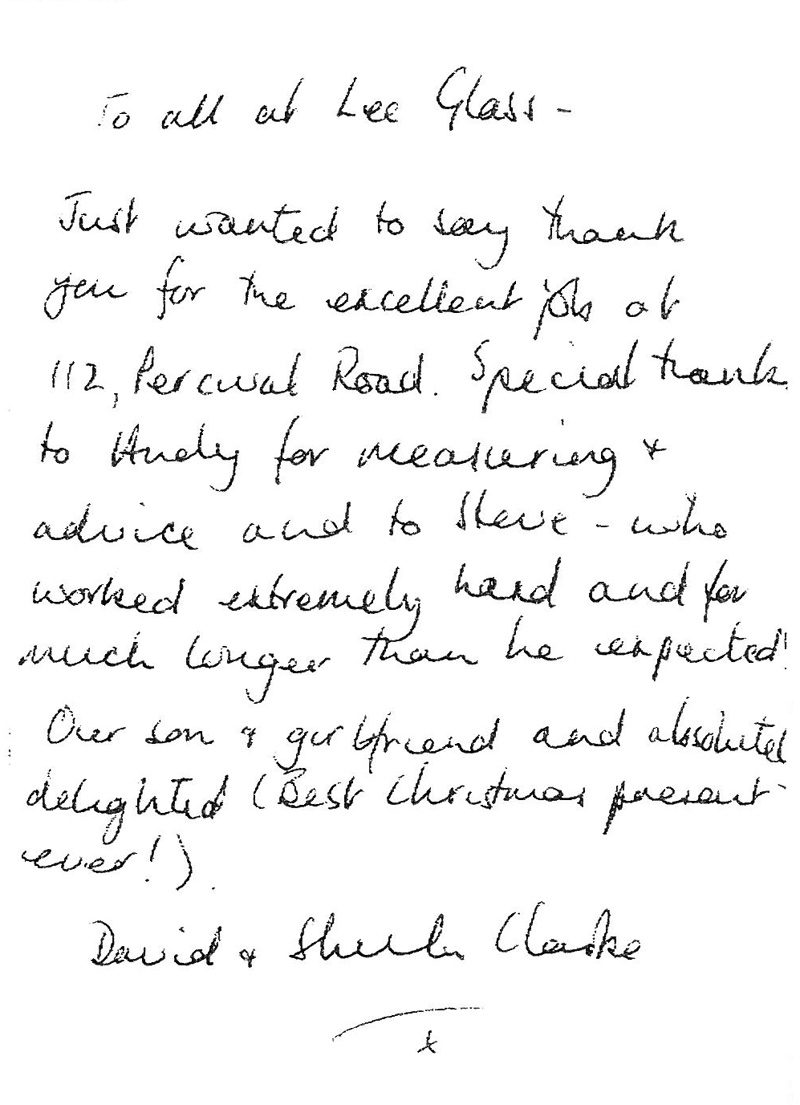 To all at Lee Glass -
Just wanted to say thank
you for the excellent job at
112, Percival Road. Special thank
to Andy for measuring +
advice and to Steve - who
worked extremely hard and for
much longer than he expected!
Our son & girlfriend and absolutel
delighted (Best Christmas present
ever!).
David & Clarke
x